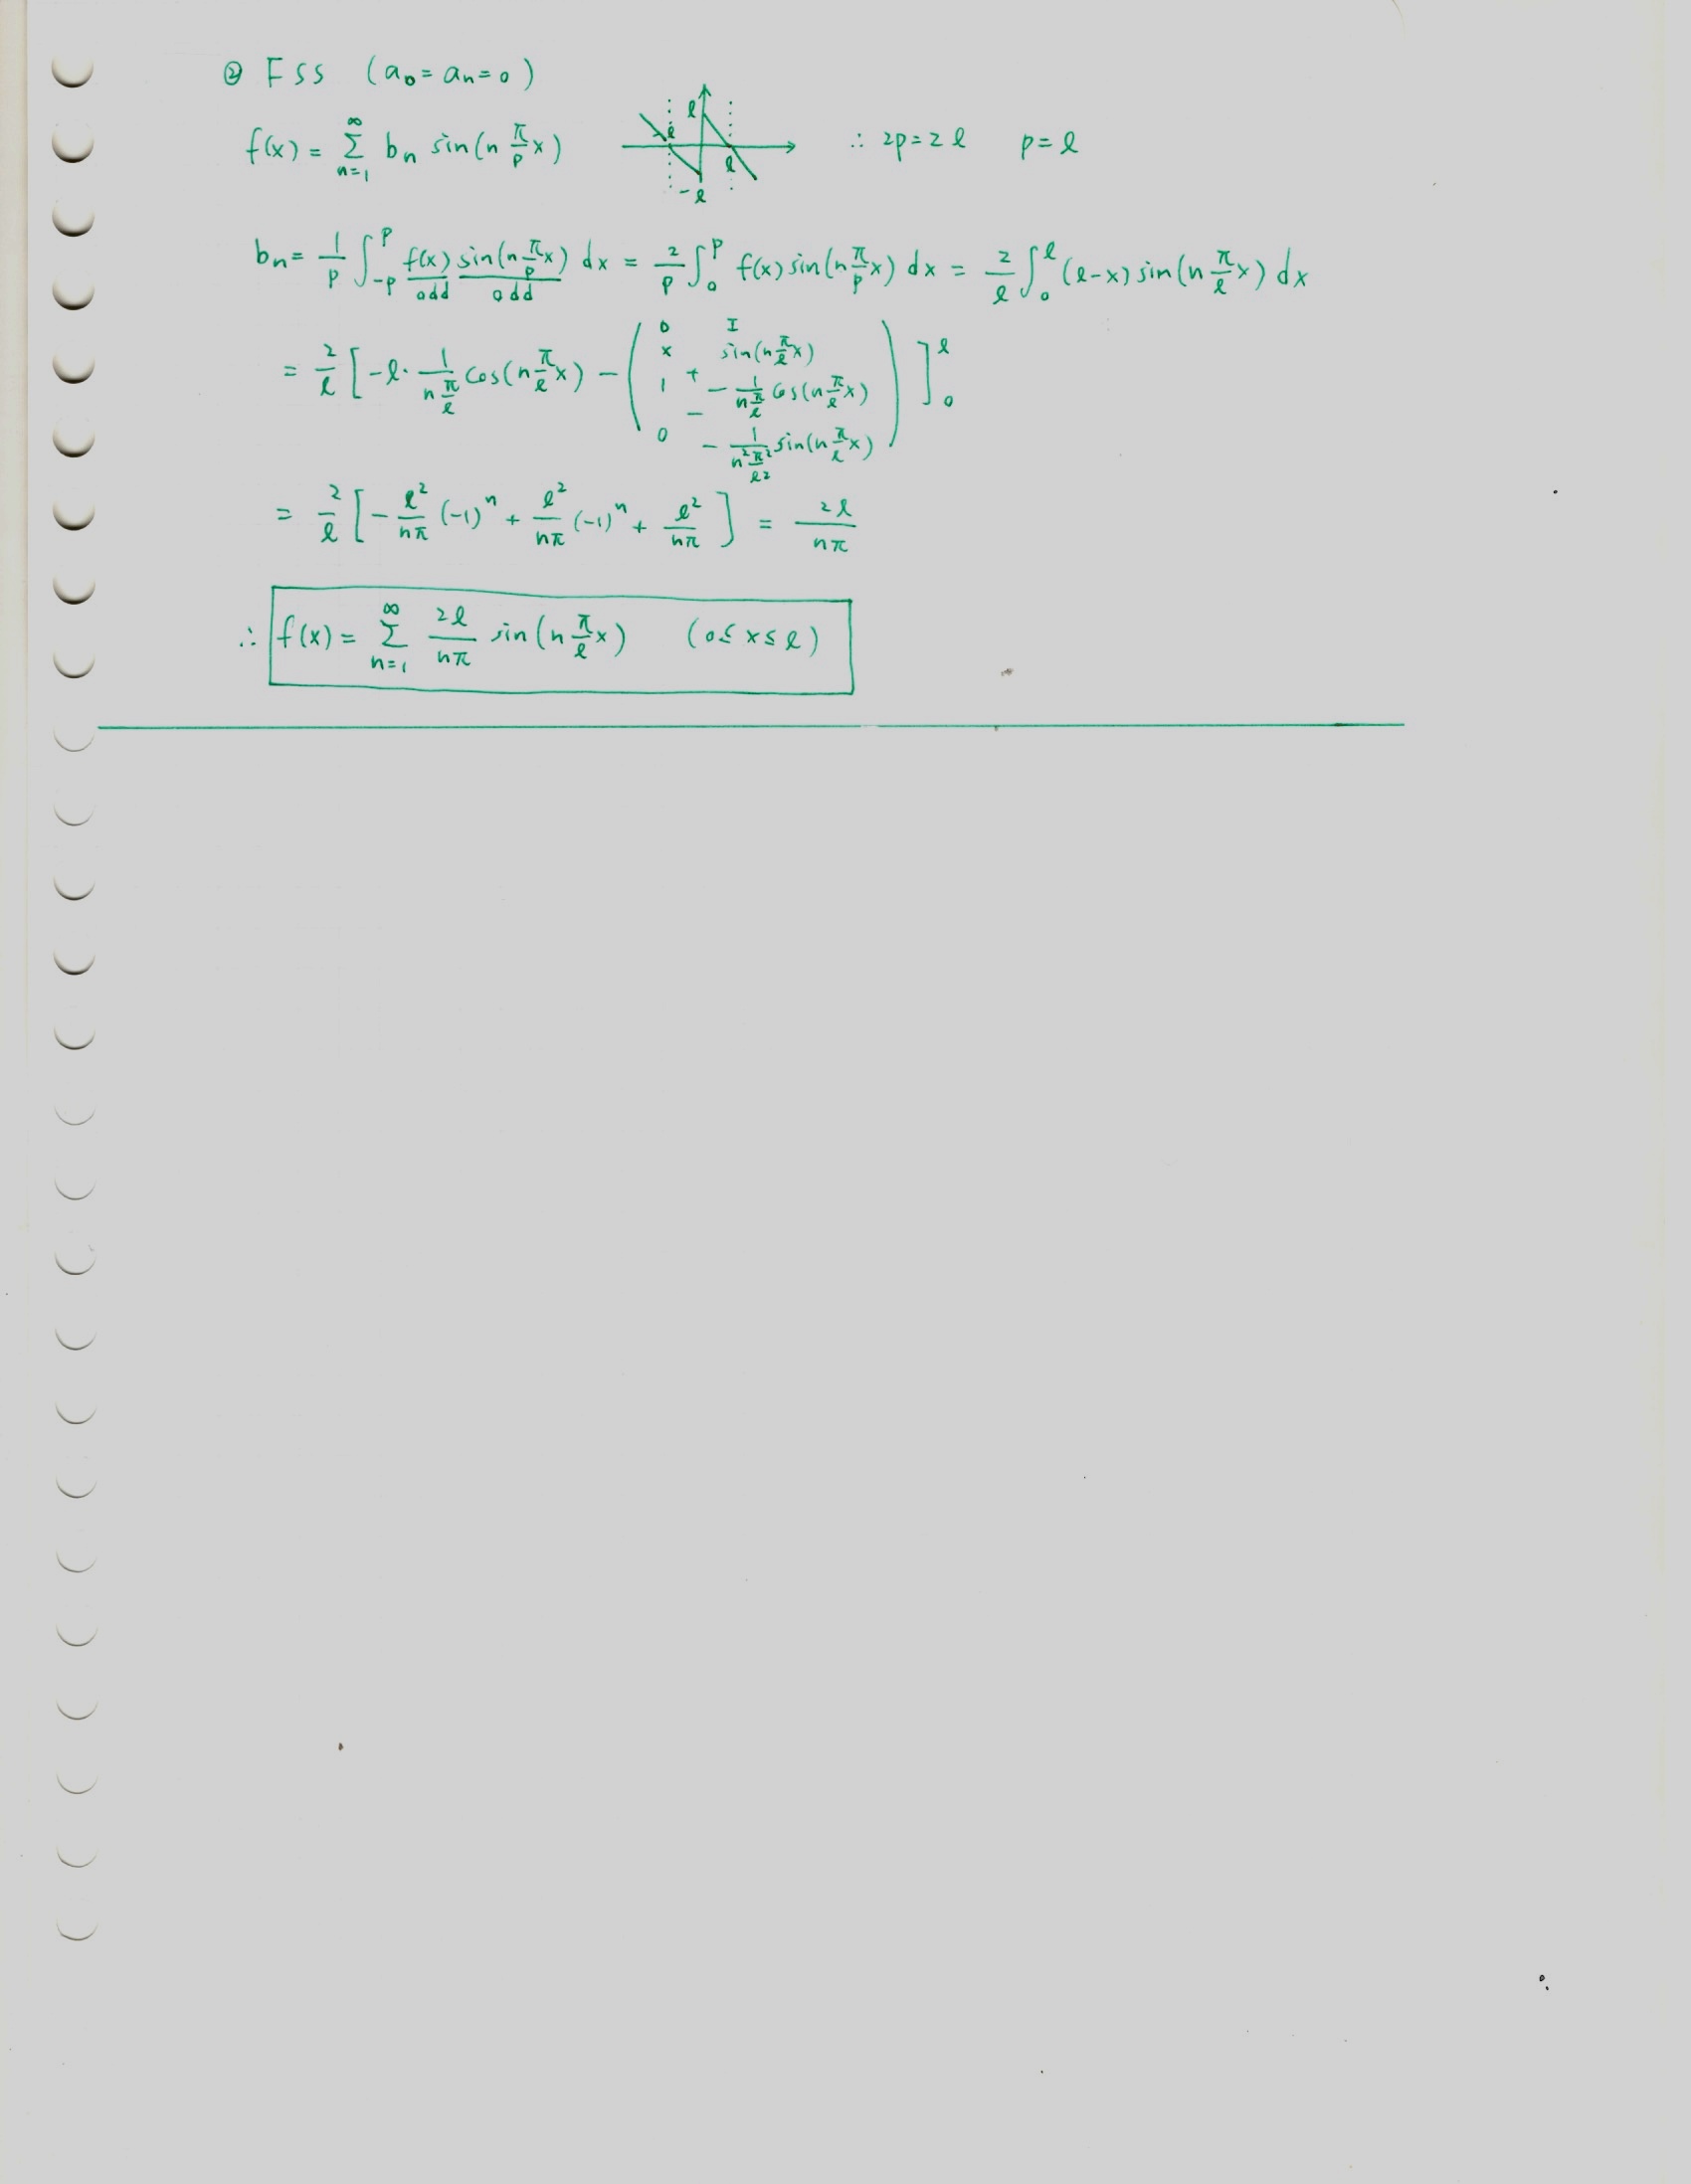 ② FSS (a₀ = aₙ = 0)
f(x) = Σ_{n=1}^{∞} bₙ sin(n π/p x) ℓ -ℓ ℓ -ℓ ∴ 2p = 2ℓ p = ℓ
bₙ = 1/p ∫_{-p}^{p} f(x) sin(n π/p x) dx = 2/p ∫_{0}^{p} f(x) sin(n π/p x) dx = 2/ℓ ∫_{0}^{ℓ} (ℓ-x) sin(n π/ℓ x) dx
odd odd
D I
x sin(n π/ℓ x)
= 2/ℓ [ -ℓ · 1/(n π/ℓ) cos(n π/ℓ x) - ( 1 + - 1/(n π/ℓ) cos(n π/ℓ x) ) ]_{0}^{ℓ}
0 - - 1/(n² π²/ℓ²) sin(n π/ℓ x)
= 2/ℓ [ - ℓ²/nπ (-1)ⁿ + ℓ²/nπ (-1)ⁿ + ℓ²/nπ ] = 2ℓ/nπ
∴ f(x) = Σ_{n=1}^{∞} 2ℓ/nπ sin(n π/ℓ x) (0 ≤ x ≤ ℓ)